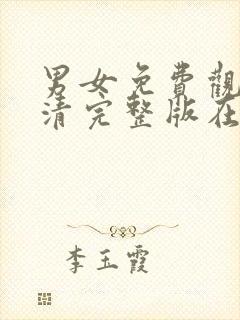 男女免費觀
清完整版在
李玉霞